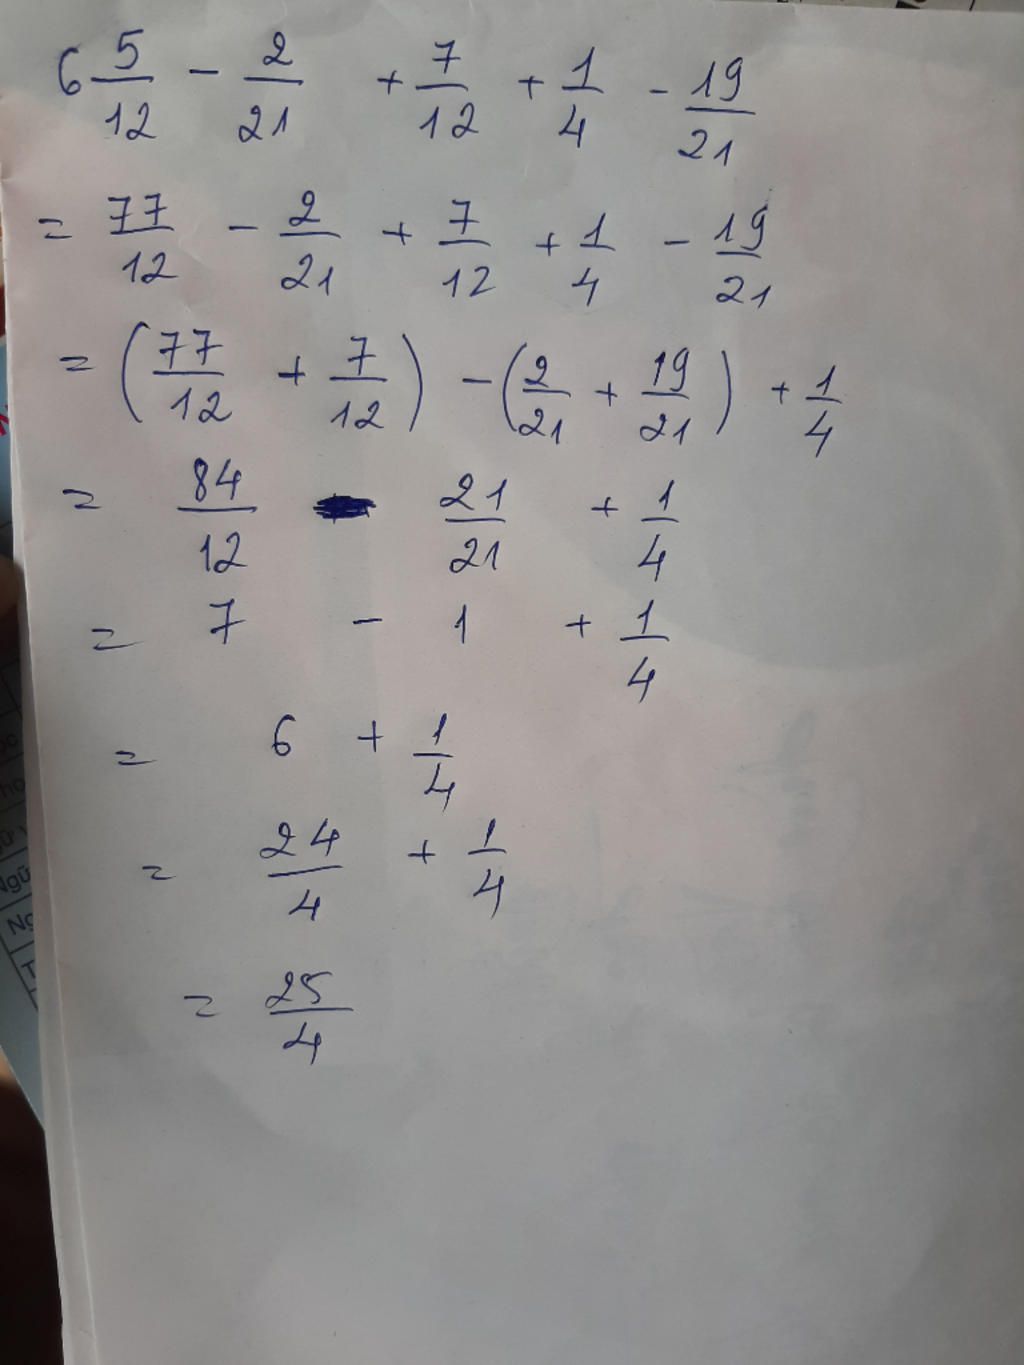 6 5/12 - 2/21 + 7/12 + 1/4 - 19/21
= 77/12 - 2/21 + 7/12 + 1/4 - 19/21
= (77/12 + 7/12) - (2/21 + 19/21) + 1/4
= 84/12 - 21/21 + 1/4
= 7 - 1 + 1/4
= 6 + 1/4
= 24/4 + 1/4
= 25/4